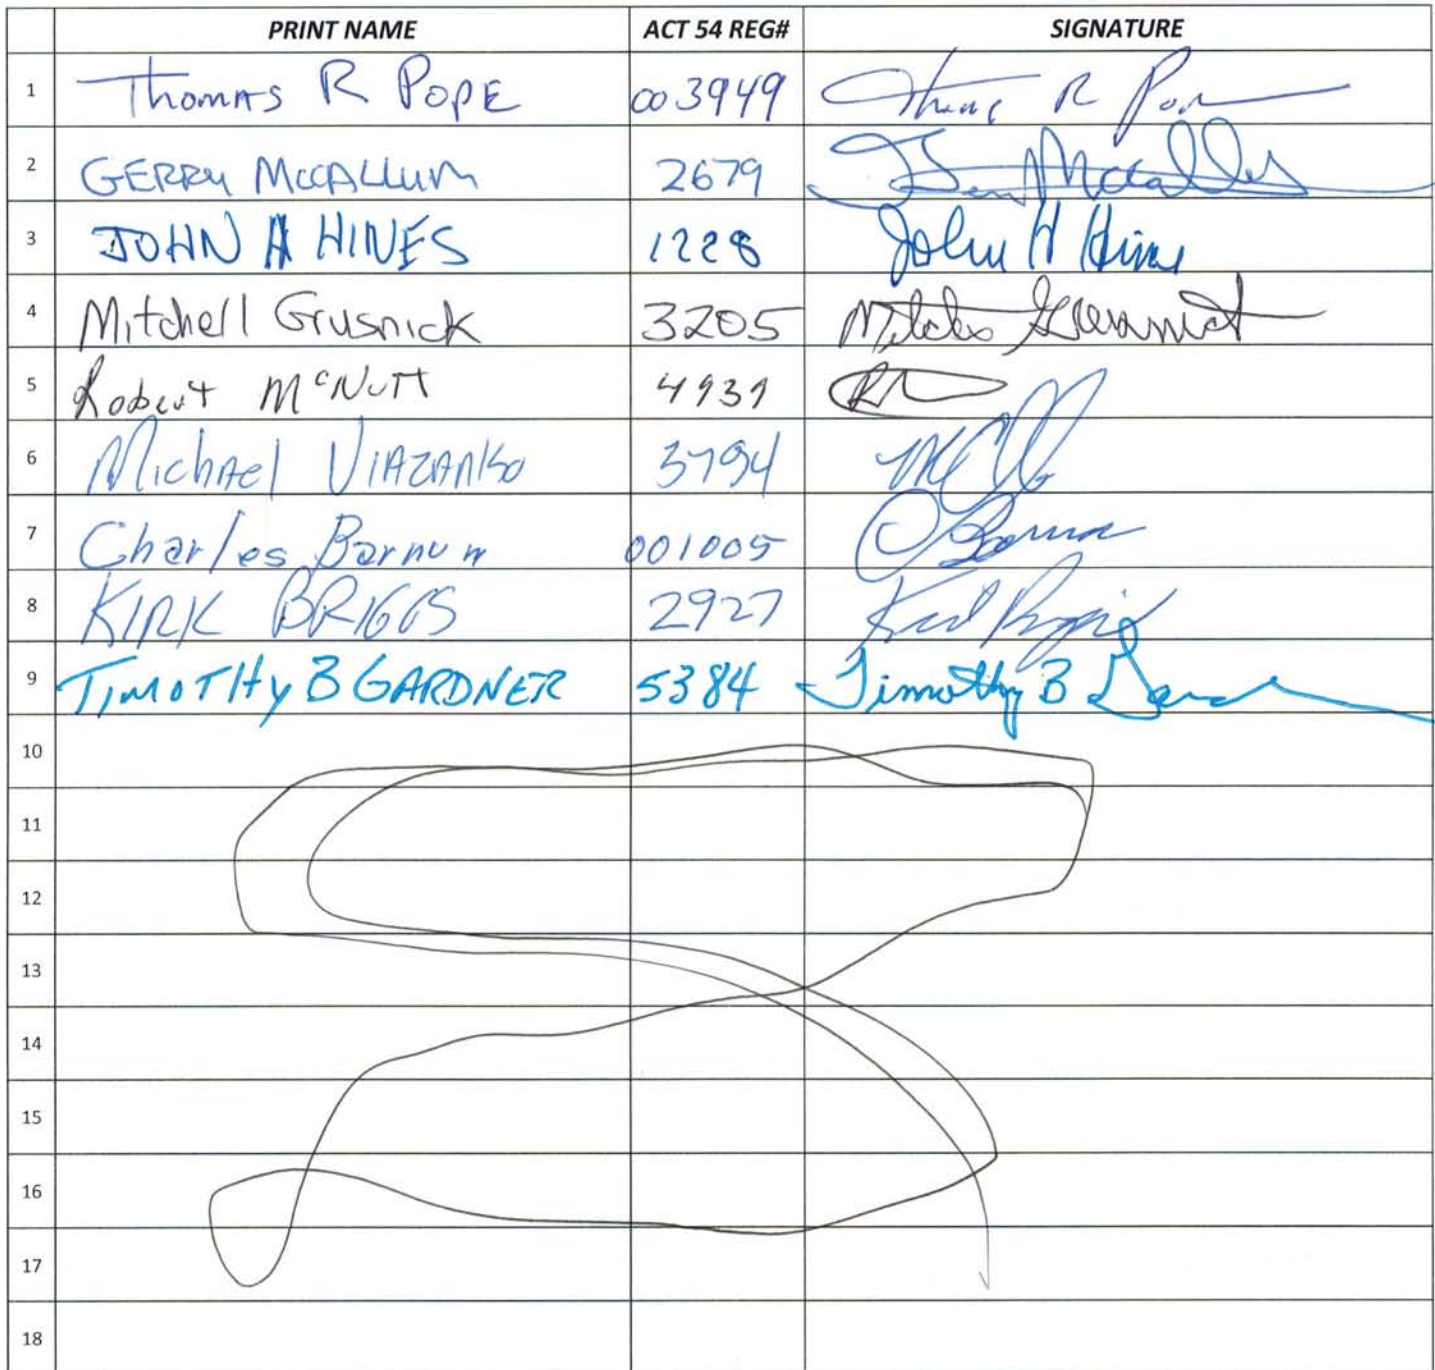 PRINT NAME ACT 54 REG# SIGNATURE
1 Thomas R Pope 003949 Thomas R Pope
2 GERRY McCALLUM 2679
3 JOHN H HINES 1228 John H Hines
4 Mitchell Grusnick 3205
5 Robert McNutt 4939
6 Michael 3794
7 Charles Barnum 001005 C Barnum
8 KIRK BRIGGS 2927 Kirk Briggs
9 TIMOTHY B GARDNER 5384 Timothy B
10
11
12
13
14
15
16
17
18